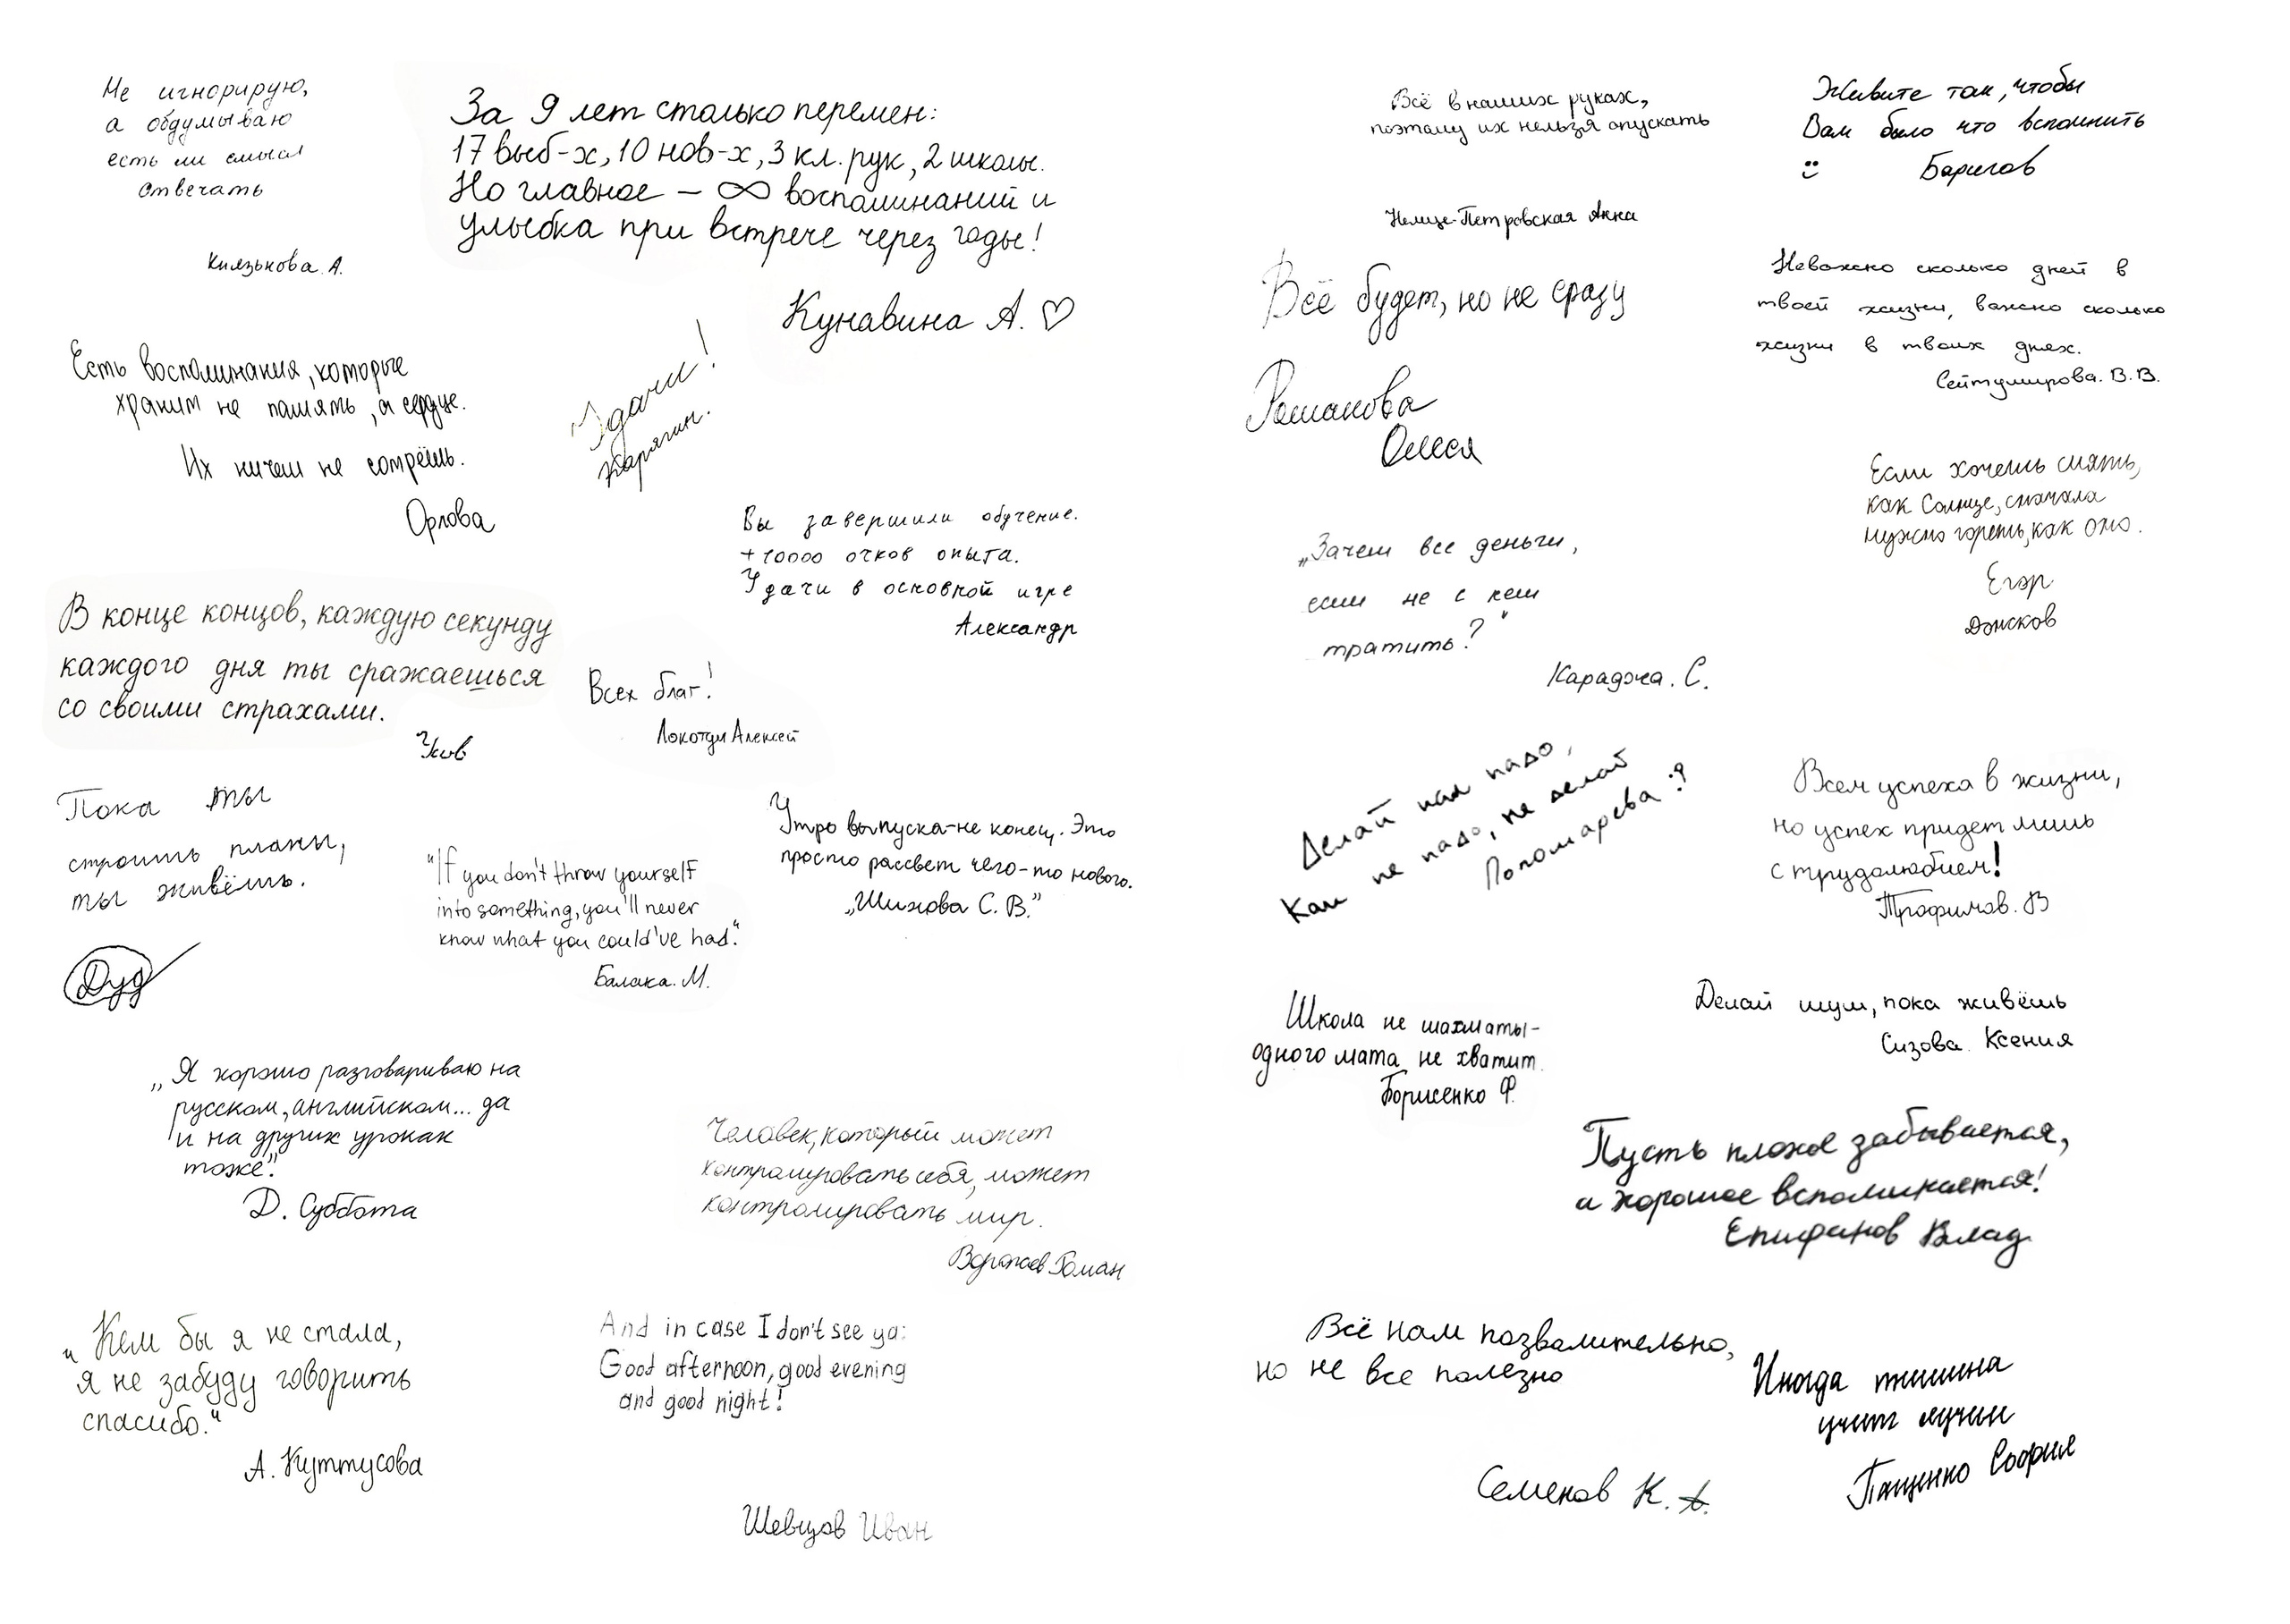 Не игнорирую,
а обдумываю
есть ли смысл
отвечать
Князькова А.
За 9 лет столько перемен:
17 выб-х, 10 нов-х, 3 кл. рук, 2 школы.
Но главное – ∞ воспоминаний и
улыбка при встрече через годы!
Кунавина А. ♡
Есть воспоминания, которые
хранит не память, а сердце.
Их ничем не сотрёшь.
Орлова
Удачи!
Карягин.
Вы завершили обучение.
+10000 очков опыта.
Удачи в основной игре
Александр
В конце концов, каждую секунду
каждого дня ты сражаешься
со своими страхами.
Всех благ!
Алексей
Пока ты
строишь планы,
ты живёшь.
Дуд
"If you don't throw yourself
into something, you'll never
know what you could've had."
Балака. М.
Утро выпуска-не конец. Это
просто рассвет чего-то нового.
„Шихова С. В."
„Я хорошо разговариваю на
русском, английском... да
и на других уроках
тоже."
Д. Суббота
Человек, который может
контролировать себя, может
контролировать мир.
Роман
„Кем бы я не стала,
я не забуду говорить
спасибо."
А. Куттусова
And in case I don't see ya:
Good afternoon, good evening
and good night!
Шевцов Иван
Всё в наших руках,
поэтому их нельзя опускать
Анна
Живите так, чтобы
Вам было что вспомнить
Баригов
Всё будет, но не сразу
Романова
Олеся
Неважно сколько дней в
твоей жизни, важно сколько
жизни в твоих днях.
Сейтумирова. В.В.
Если хочешь сиять,
как Солнце, сначала
нужно гореть, как оно.
Егор
„Зачем все деньги,
если не с кем
тратить?"
Караджа. С.
Делай как надо,
Как не надо, не делай
Пономарева :?
Всем успеха в жизни,
но успех придет лишь
с трудолюбием!
Трофимов. В
Школа не шахматы-
одного мата не хватит.
Борисенко Ф.
Делай шум, пока живёшь
Сизова. Ксения
Пусть плохое забывается,
а хорошое вспоминается!
Епифанов Влад
Всё нам позволительно,
но не все полезно
Семенов К. А.
Иногда тишина
учит лучше
Пащенко София